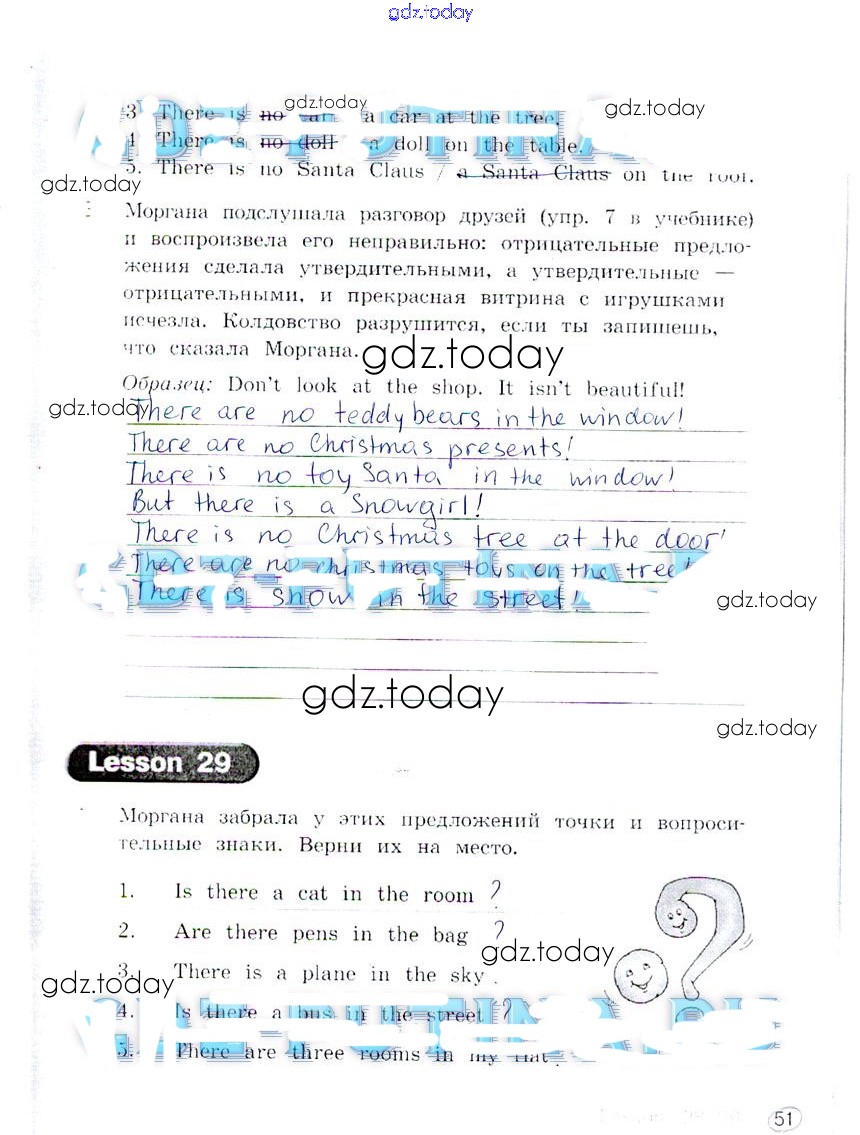 gdz.today
3 There is no car a car at the tree.
gdz.today
gdz.today
4 There is no doll a doll on the table.
5. There is no Santa Claus / a Santa Claus on the roof.
gdz.today
Моргана подслушала разговор друзей (упр. 7 в учебнике)
и воспроизвела его неправильно: отрицательные предло-
жения сделала утвердительными, а утвердительные —
отрицательными, и прекрасная витрина с игрушками
исчезла. Колдовство разрушится, если ты запишешь,
что сказала Моргана.
gdz.today
Образец: Don't look at the shop. It isn't beautiful!
gdz.today
There are no teddy bears in the window!
There are no Christmas presents!
There is no toy Santa in the window!
But there is a Snowgirl!
There is no Christmas tree at the door!
There are no christmas toys on the tree!
There is snow in the street!
gdz.today
gdz.today
gdz.today
Lesson 29
Моргана забрала у этих предложений точки и вопроси-
тельные знаки. Верни их на место.
1. Is there a cat in the room ?
2. Are there pens in the bag ?
gdz.today
3. There is a plane in the sky .
gdz.today
4. Is there a bus in the street ?
5. There are three rooms in my flat .
51